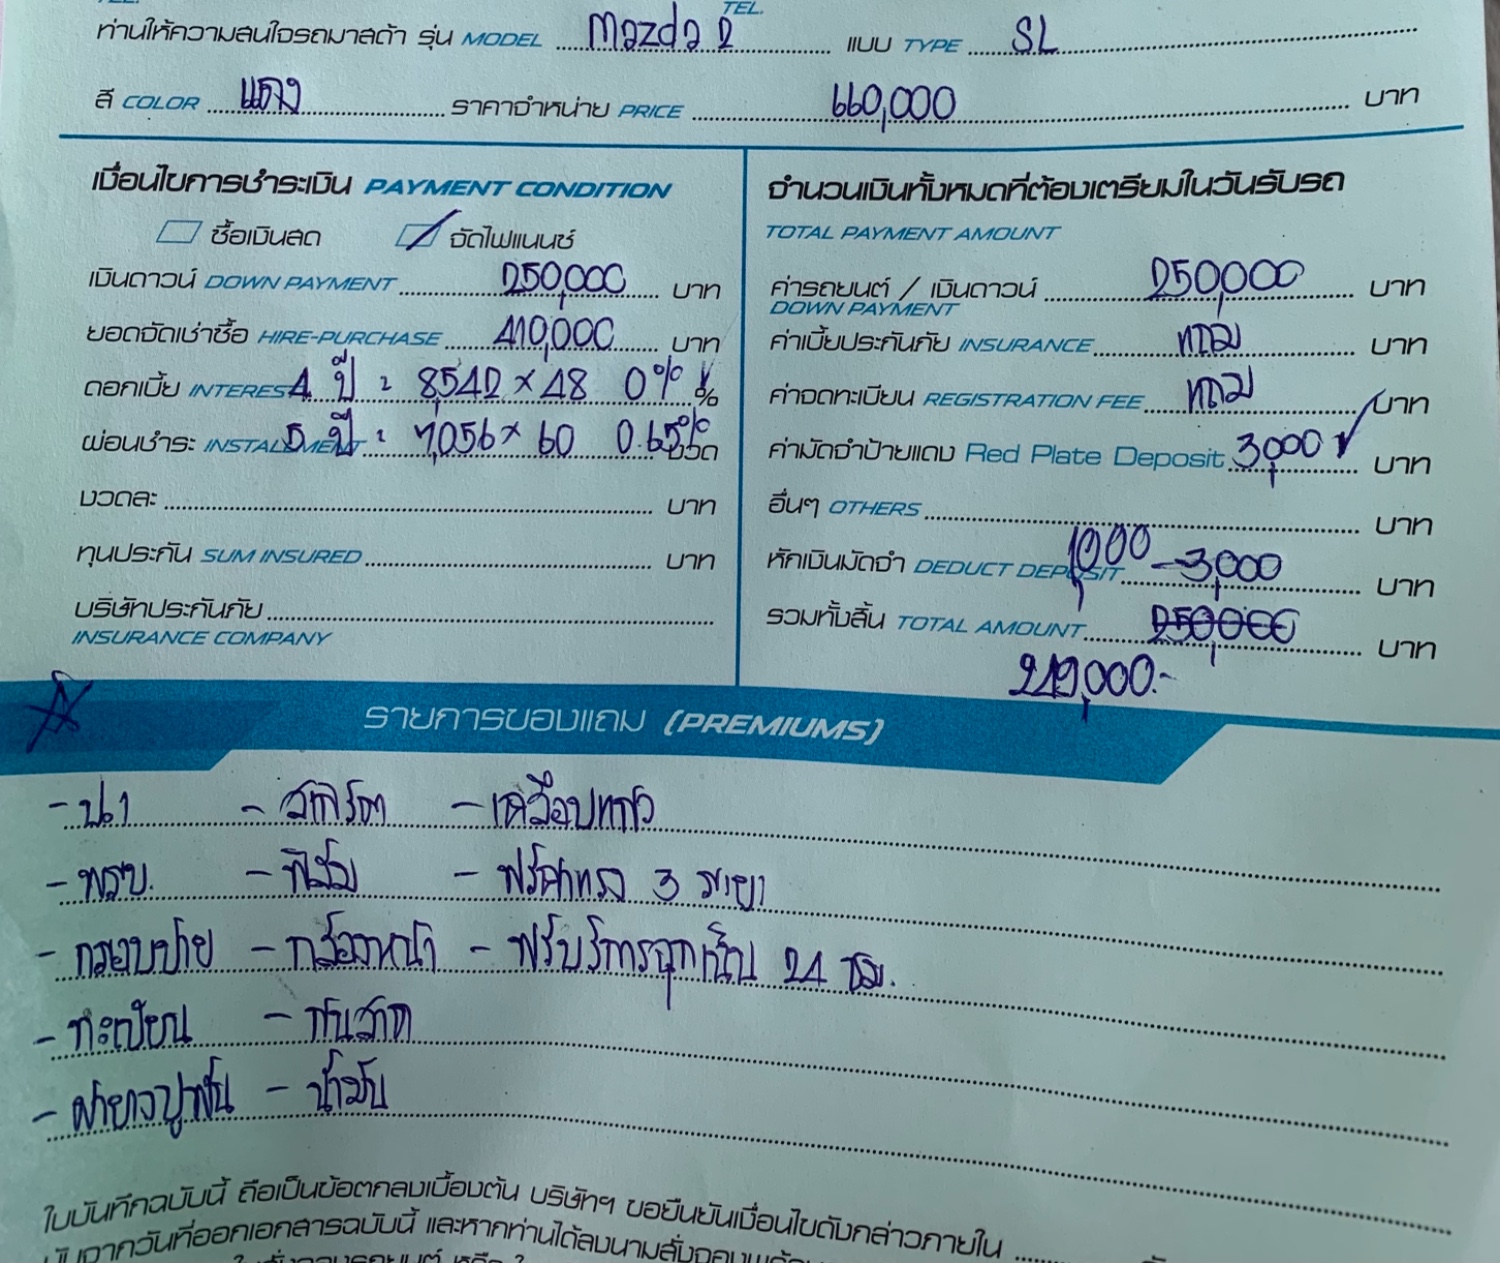 TEL.
ท่านให้ความสนใจรถมาสด้า รุ่น MODEL Mazda 2 แบบ TYPE SL
สี COLOR แดง ราคาจำหน่าย PRICE 660,000 บาท
เงื่อนไขการชำระเงิน PAYMENT CONDITION
ซื้อเงินสด จัดไฟแนนซ์
เงินดาวน์ DOWN PAYMENT 250,000 บาท
ยอดจัดเช่าซื้อ HIRE-PURCHASE 410,000 บาท
ดอกเบี้ย INTEREST 4 ปี : 8,542 × 48 0% %
ผ่อนชำระ INSTALMENT 5 ปี : 7,056 × 60 0.65% งวด
งวดละ บาท
ทุนประกัน SUM INSURED บาท
บริษัทประกันภัย
INSURANCE COMPANY
จำนวนเงินทั้งหมดที่ต้องเตรียมในวันรับรถ
TOTAL PAYMENT AMOUNT
ค่ารถยนต์ / เงินดาวน์ 250,000 บาท
DOWN PAYMENT
ค่าเบี้ยประกันภัย INSURANCE แถม บาท
ค่าจดทะเบียน REGISTRATION FEE แถม บาท
ค่ามัดจำป้ายแดง Red Plate Deposit 3,000 บาท
อื่นๆ OTHERS บาท
หักเงินมัดจำ DEDUCT DEPOSIT 1,000 -3,000 บาท
รวมทั้งสิ้น TOTAL AMOUNT 250,000 บาท
249,000.-
รายการของแถม (PREMIUMS)
- ป.1 - สเกิร์ต - เคลือบแก้ว
- พรบ. - ฟิล์ม - ฟรีค่าแรง 3 ระยะ
- กรอบป้าย - กล้องหน้า - ฟรีบริการฉุกเฉิน 24 ชม.
- ทะเบียน - ถาดท้าย
- ผ้ายางปูพื้น - น้ำมัน
ใบบันทึกฉบับนี้ ถือเป็นข้อตกลงเบื้องต้น บริษัทฯ ขอยืนยันเงื่อนไขดังกล่าวภายใน
นับจากวันที่ออกเอกสารฉบับนี้ และหากท่านได้ลงนามสั่งจองพร้อม